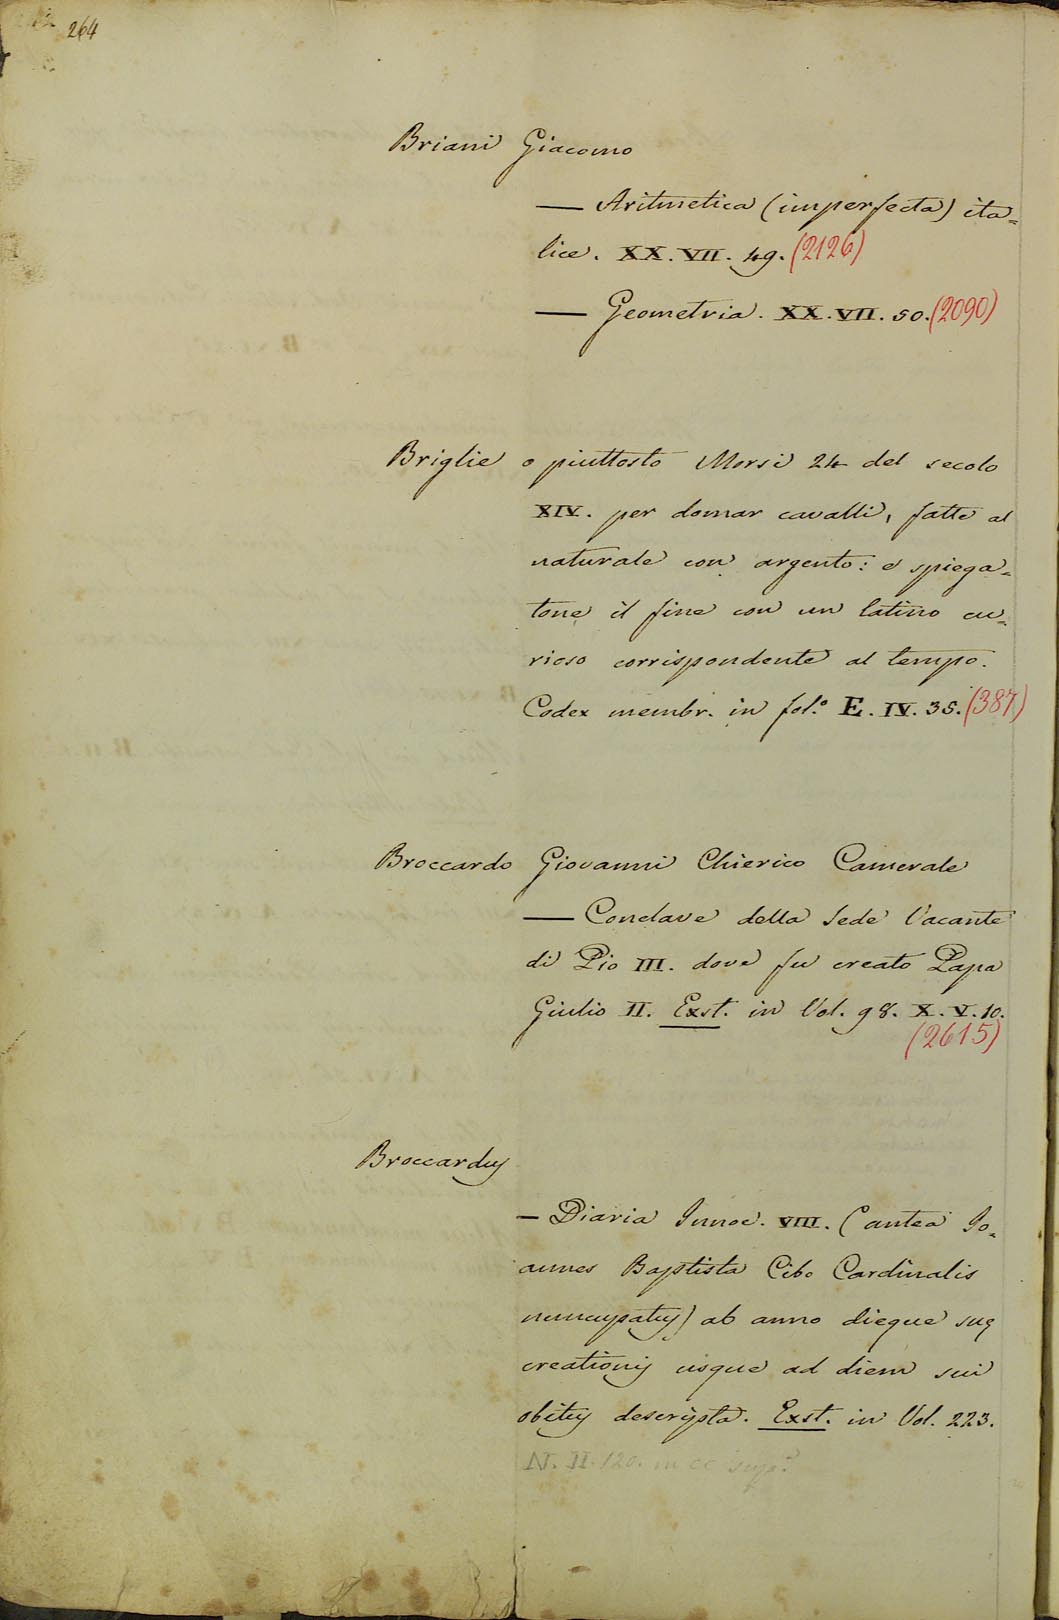 264
Briani Giacomo
— Aritmetica (imperfecta) ita=
lice. XX. VII. 49. (2126)
— Geometria. XX. VII. 50. (2090)
Briglie o piuttosto Morsi 24 del secolo
XIV. per domar cavalli, fatte al
naturale con argento: e spiega=
tone il fine con un latino cu=
rioso corrispondente al tempo.
Codex membr. in fol.° E. IV. 35. (387)
Broccardo Giovanni Chierico Camerale
— Conclave della Sede Vacante
di Pio III. dove fu creato Papa
Giulio II. Exst. in Vol. 98. X. V. 10.
(2615)
Broccardus
— Diaria Innoc. VIII. (antea Jo=
annes Baptista Cibo Cardinalis
nuncupatus) ab anno dieque suę
creationis usque ad diem sui
obitus descripta. Exst. in Vol. 223.
N. II. 120. in